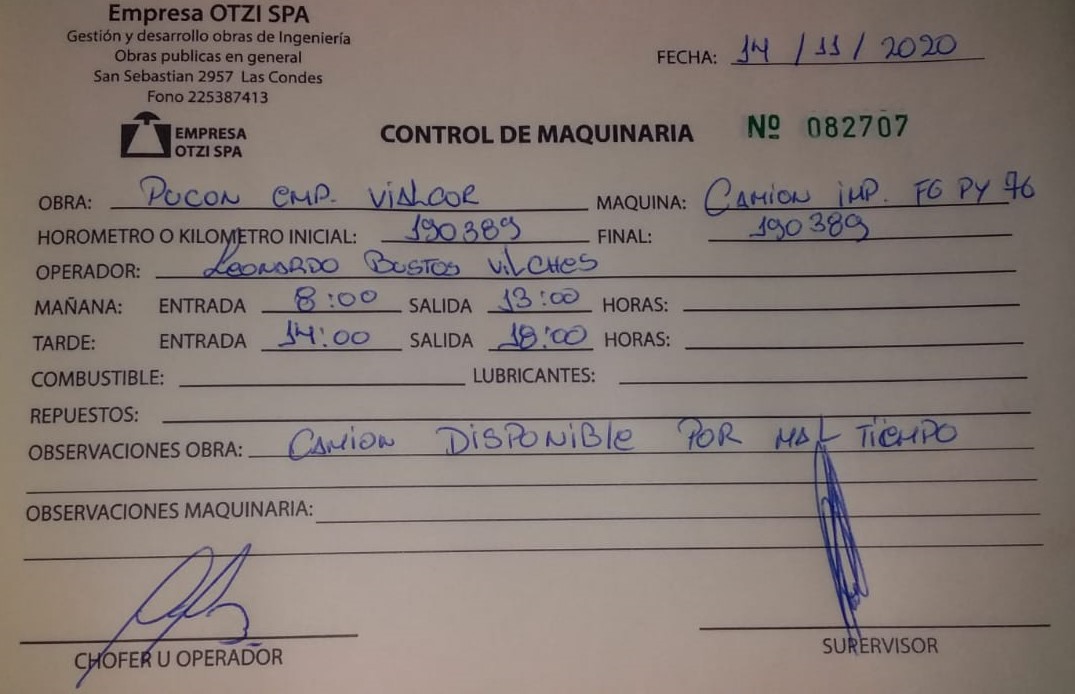 Empresa OTZI SPA
Gestión y desarrollo obras de Ingeniería
Obras publicas en general
San Sebastian 2957 Las Condes
Fono 225387413
FECHA: 14 / 11 / 2020
EMPRESA
OTZI SPA
CONTROL DE MAQUINARIA Nº 082707
OBRA: PUCON EMP. VIALCOR MAQUINA: CAMION IMP. FG PY 76
HOROMETRO O KILOMETRO INICIAL: 190389 FINAL: 190389
OPERADOR: LEONARDO BUSTOS VILCHES
MAÑANA: ENTRADA 8:00 SALIDA 13:00 HORAS:
TARDE: ENTRADA 14:00 SALIDA 18:00 HORAS:
COMBUSTIBLE: LUBRICANTES:
REPUESTOS:
OBSERVACIONES OBRA: CAMION DISPONIBLE POR MAL TIEMPO
OBSERVACIONES MAQUINARIA:
CHOFER U OPERADOR SUPERVISOR